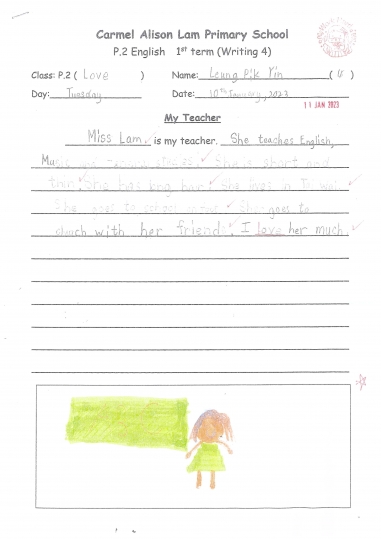 Carmel Alison Lam Primary School
P.2 English 1st term (Writing 4)
Class: P.2 ( Love ) Name: Leung Pik Yin ( 15 )
Day: Tuesday Date: 10th January, 2023
11 JAN 2023
My Teacher
Miss Lam is my teacher. She teaches English,
She is short and
thin. She has long hair. She lives in
She goes to school She goes to
church with her friend. I love her much.